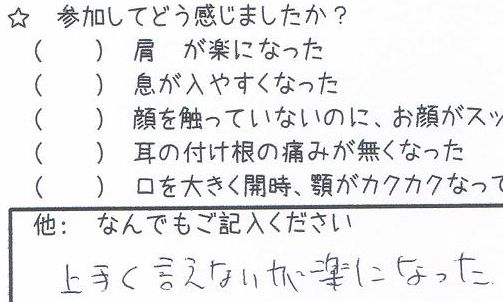 ☆ 参加してどう感じましたか？
（　　）肩　が楽になった
（　　）息が入やすくなった
（　　）顔を触っていないのに、お顔がスッ
（　　）耳の付け根の痛みが無くなった
（　　）口を大きく開時、顎がカクカクなって
他：　なんでもご記入ください
上手く言えないが楽になった